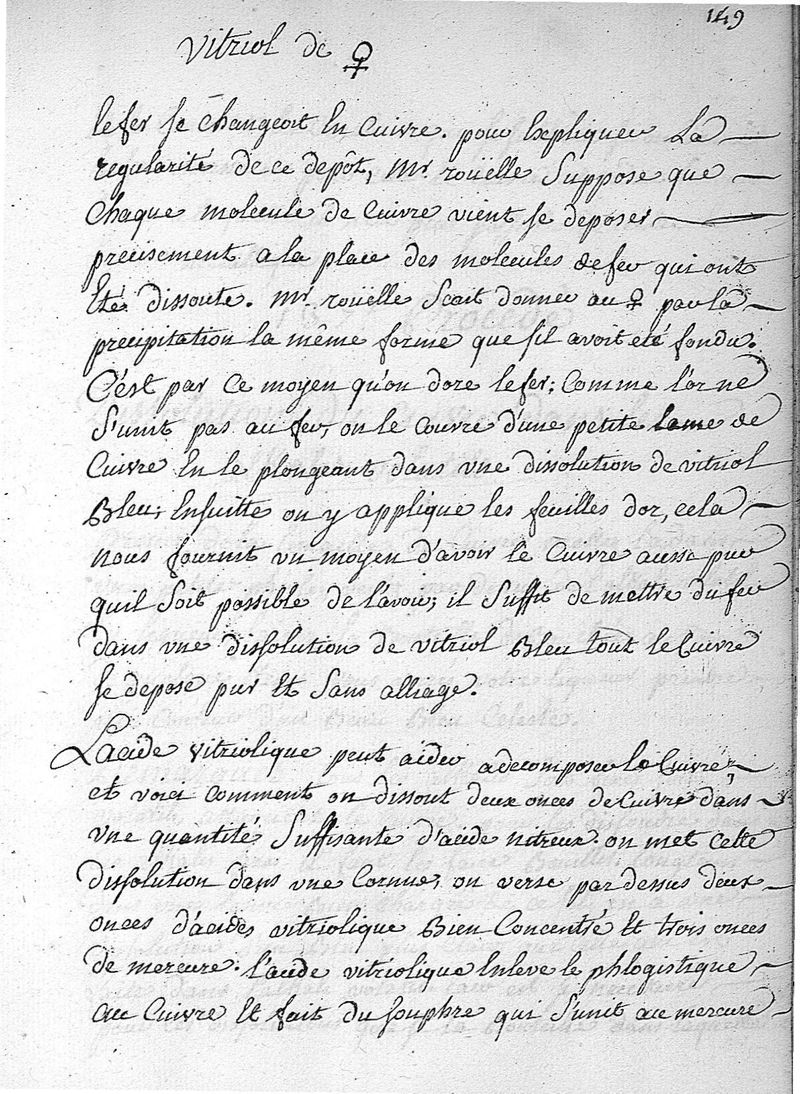 149
Vitriol de ♀
le fer se changeoit En Cuivre. pour Expliquer La
regularité de ce depôt, Mr. roüelle Suppose que
Chaque molecule de Cuivre vient se deposer
precisement a la place des molecules de fer qui ont
Eté dissoute. Mr. roüelle Scait donner au ♀ par la
precipitation la même forme que s'il avoit eté fondu.
C'est par ce moyen qu'on dore le fer; Comme l'or ne
S'unit pas au fer, on le Couvre d'une petite lame de
Cuivre En le plongeant dans vne dissolution de vitriol
Bleu; Ensuitte on y applique les feuilles d'or, cela
nous fournit vn moyen d'avoir le Cuivre aussi pur
quil Soit possible de l'avoir; il Suffit de mettre du fer
dans vne dissolution de vitriol Bleu tout le Cuivre
se depose pur Et Sans alliage.
L'acide vitriolique peut aider a decomposer le Cuivre,
et voici comment on dissout deux onces de Cuivre dans
vne quantité Suffisante d'acide nitreux. on met cette
dissolution dans vne Cornue, on verse par dessus deux
onces d'acides vitriolique Bien Concentré Et trois onces
de mercure. l'acide vitriolique Enleve le phlogistique
au Cuivre Et fait du souphre qui S'unit au mercure